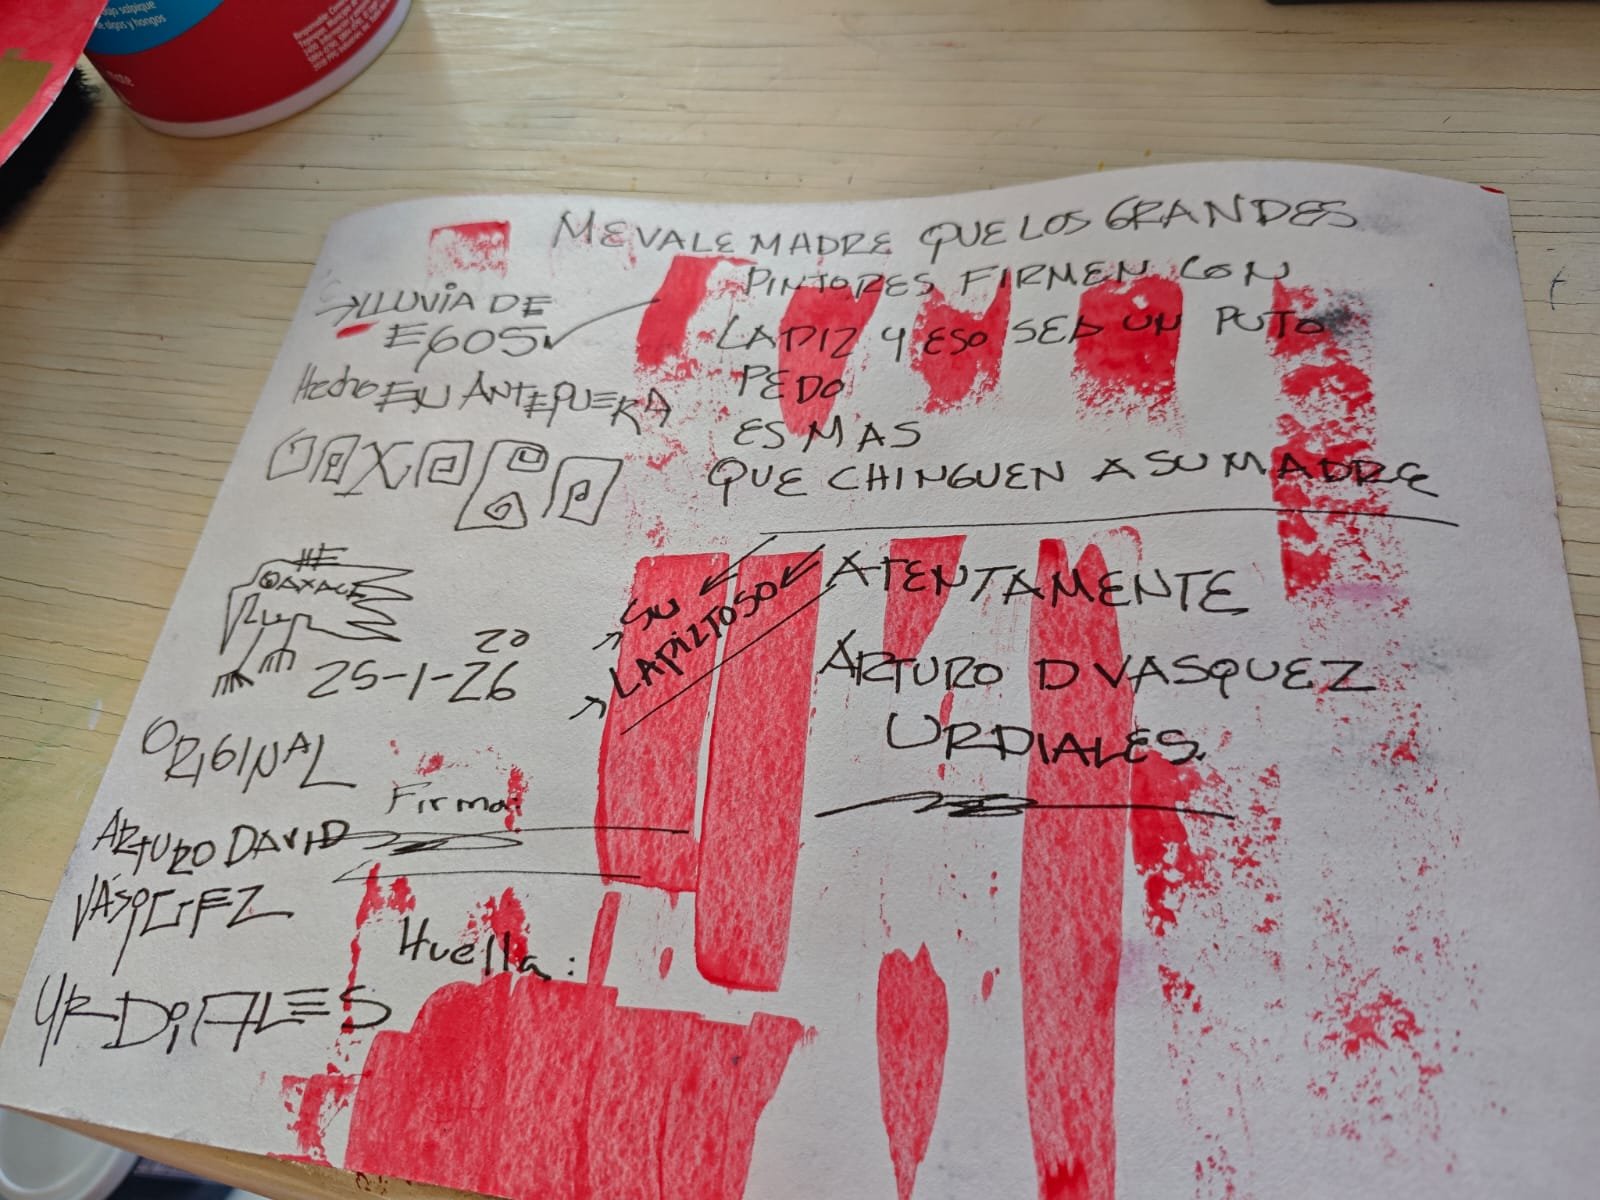 bajo salpique
de algas y hongos
Mate
ME VALE MADRE QUE LOS GRANDES
PINTORES FIRMEN CON
LAPIZ Y ESO SEA UN PUTO
PEDO
ES MAS
QUE CHINGUEN A SU MADRE
LLUVIA DE
EGOS
Hecho EN ANTEPUERA
OAXACA
HE
OAXACA
25-1-26
20
SU
LAPIZTOSO
ATENTAMENTE
ARTURO D VASQUEZ
URDIALES.
ORIGINAL
Firma:
ARTURO DAVID
VÁSQUEZ
URDIALES
Huella: